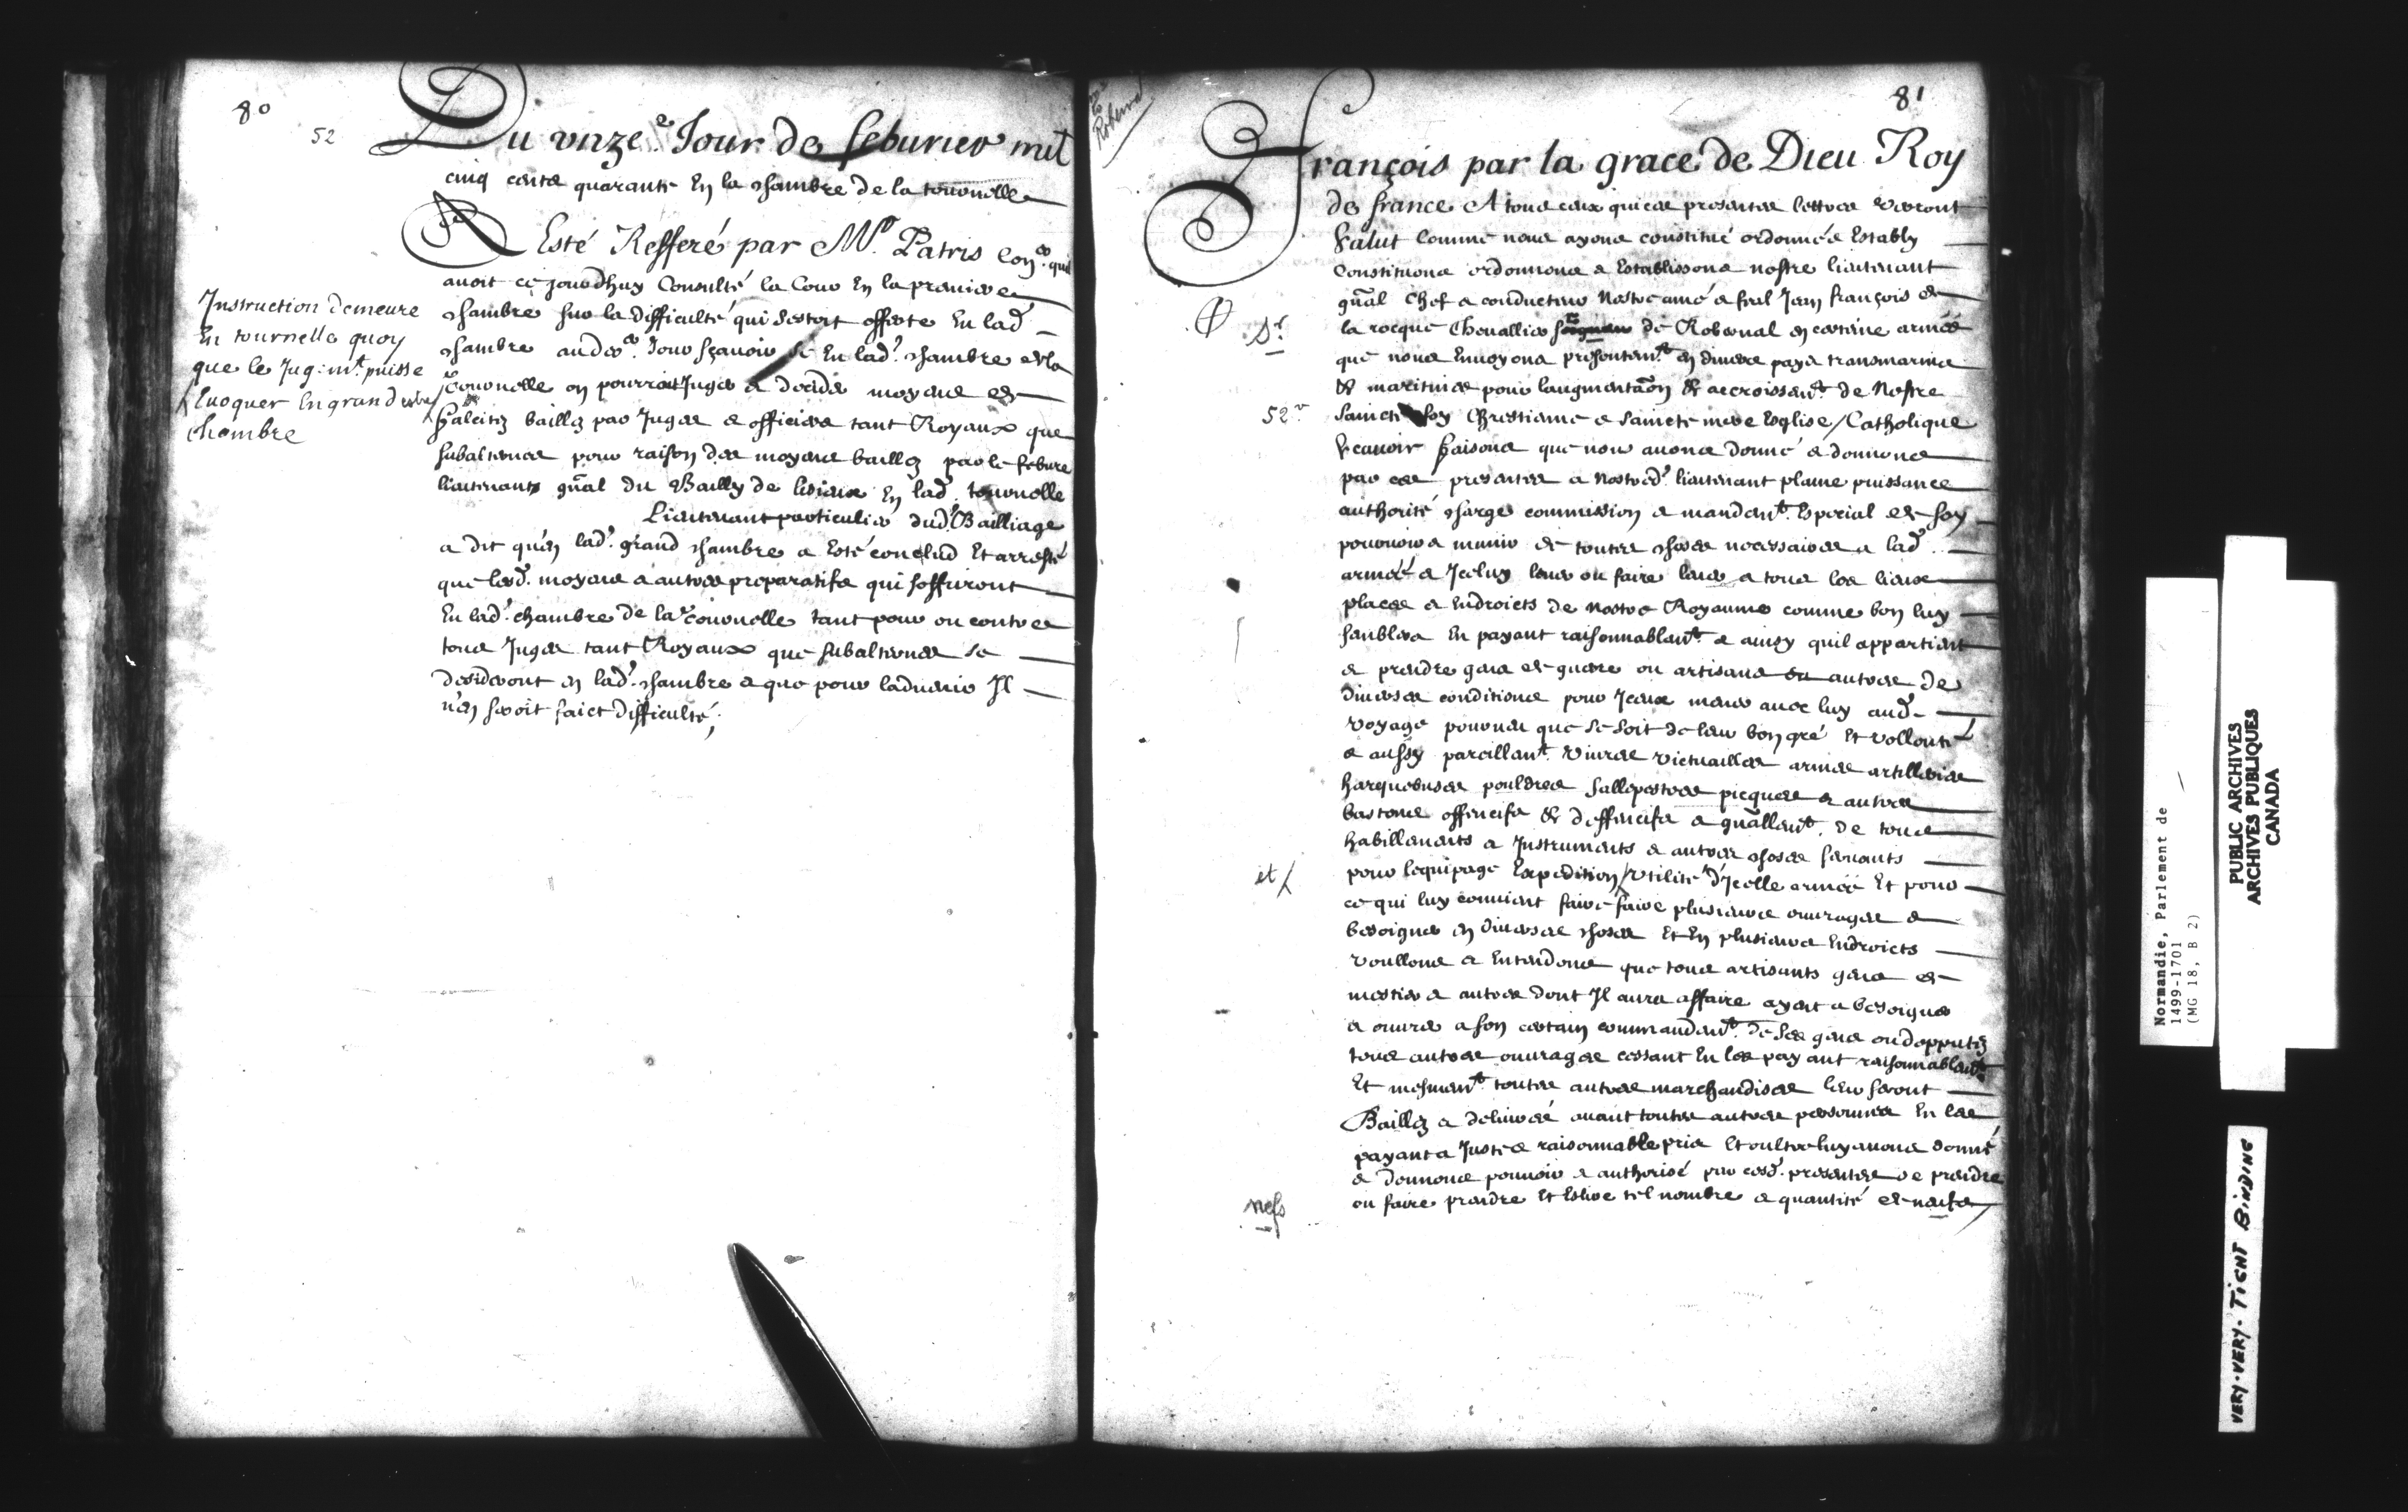 80
52
Du unze.e Jour de feburier mil
cinq cents quarante En la chambre de la tournelle
A Esté Refferé par Mr. Patris Con.er qui
auoit ce jourdhuy Consulté la Cour En la premiere
chambre sur la difficulté qui sestoit offerte En lad.
chambre aud. Jour sçauoir se En lad. chambre de la
Tournelle on pourroit Juger & decider moyens de
faleitz baillez par Juges & officiers tant Royaux que
subalternes pour raison des moyens baillez par le febure
lieutenant gñal du Bailly de lisieux En lad. tournelle
Lieutenant particulier dud. Bailliage
a dit qu'en lad. grand chambre a Esté conclud Et arresté
que lesd. moyens & autres preparatifs qui soffriront
En lad. chambre de la Tournelle tant pour ou contre
tous Juges tant Royaux que subalternes se
desideront en lad. chambre & que pour laduenir Il
n'en seroit faict difficulté;
Instruction demeure
En tournelle quoy
que le Jug.mt. puisse
Euoquer En grand
chambre
81
Roberval
François par la grace de Dieu Roy
de france A tous ceux qui ces presentes lettres verront
Salut Comme nous ayons constitué ordonné & Estably
Constituons ordonnons & Establissons nostre lieutenant
gñal Chef & conducteur Nostre amé & feal Jean françois de
la rocque Cheuallier de Roberual en certaine armée
Sr.
que nous Enuoyons presentem.t en diuers pays transmarins
& maritimes pour laugmentaõn & accroissem.t de Nostre
52 v
saincte foy Chrestienne & saincte mere Esglise / Catholique
scauoir faisons que nous auons donné & donnons
par ces presentes a Nostred. lieutenant plaine puissance
authorité charge commission & mandem.t Especial de soy
pouruoir & munir de toutes choses necessaires a lad.
armée & Jcelluy leuer ou faire leuer a tous les lieux
places & Endroicts de nostre Royaume comme bon luy
semblera En payant raisonnablem.t & ainsy quil appartient
& prendre gens de guerre ou artisans ou autres de
diuerses conditions pour Jceux mener auec luy aud.
voyage pourueu que se soit de leur bon gré Et vollonté
& aussy pareillem.t viures victuailles armes artilleries
harquebuses pouldres sallepestres picques & autres
bastons offencifs & deffencifs & gñallem.t de tous
habillements & Instruments & autres choses seruants
pour lequipage Expedition / Vtilité d'Jcelle armée Et pour
et /
ce qui luy conuient faire faire plusieurs ouurages &
besoignes en diuerses choses Et En plusieurs Endroicts
voullons & Entendons que tous artisants gens de
mestier & autres dont Il aura affaire ayent a besoigner
& ouurer a son certain commandem.t de ses gens ou depputez
tous autres ouurages cessant En les payant raisonnablem.t
Et mesmem.t toutes autres marchandises leur seront
Baillez & deliuré auant toutes autres personnes En les
payant a Juste & raisonnable prix Et oultre luy auons donné
& donnons pouuoir & authorité par cesd. presentes de prendre
ou faire prendre Et Eslire tel nombre & quantité de naifs
nefs
Normandie, Parlement de
1499-1701
(MG 18, B 2)
PUBLIC ARCHIVES
ARCHIVES PUBLIQUES
CANADA
VERY-VERY-TIGHT BINDING